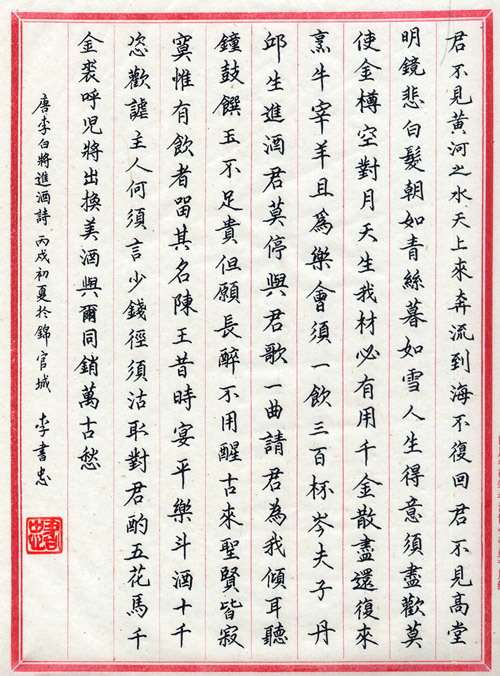 君不見黃河之水天上來奔流到海不復回君不見高堂
明鏡悲白髮朝如青絲暮如雪人生得意須盡歡莫
使金樽空對月天生我材必有用千金散盡還復來
烹牛宰羊且爲樂會須一飲三百杯岑夫子丹
邱生進酒君莫停與君歌一曲請君為我傾耳聽
鐘鼓饌玉不足貴但願長醉不用醒古來聖賢皆寂
寞惟有飲者留其名陳王昔時宴平樂斗酒十千
恣歡謔主人何須言少錢徑須沽取對君酌五花馬千
金裘呼兒將出換美酒與爾同銷萬古愁
唐李白將進酒詩 丙戌初夏於錦官城 李書忠